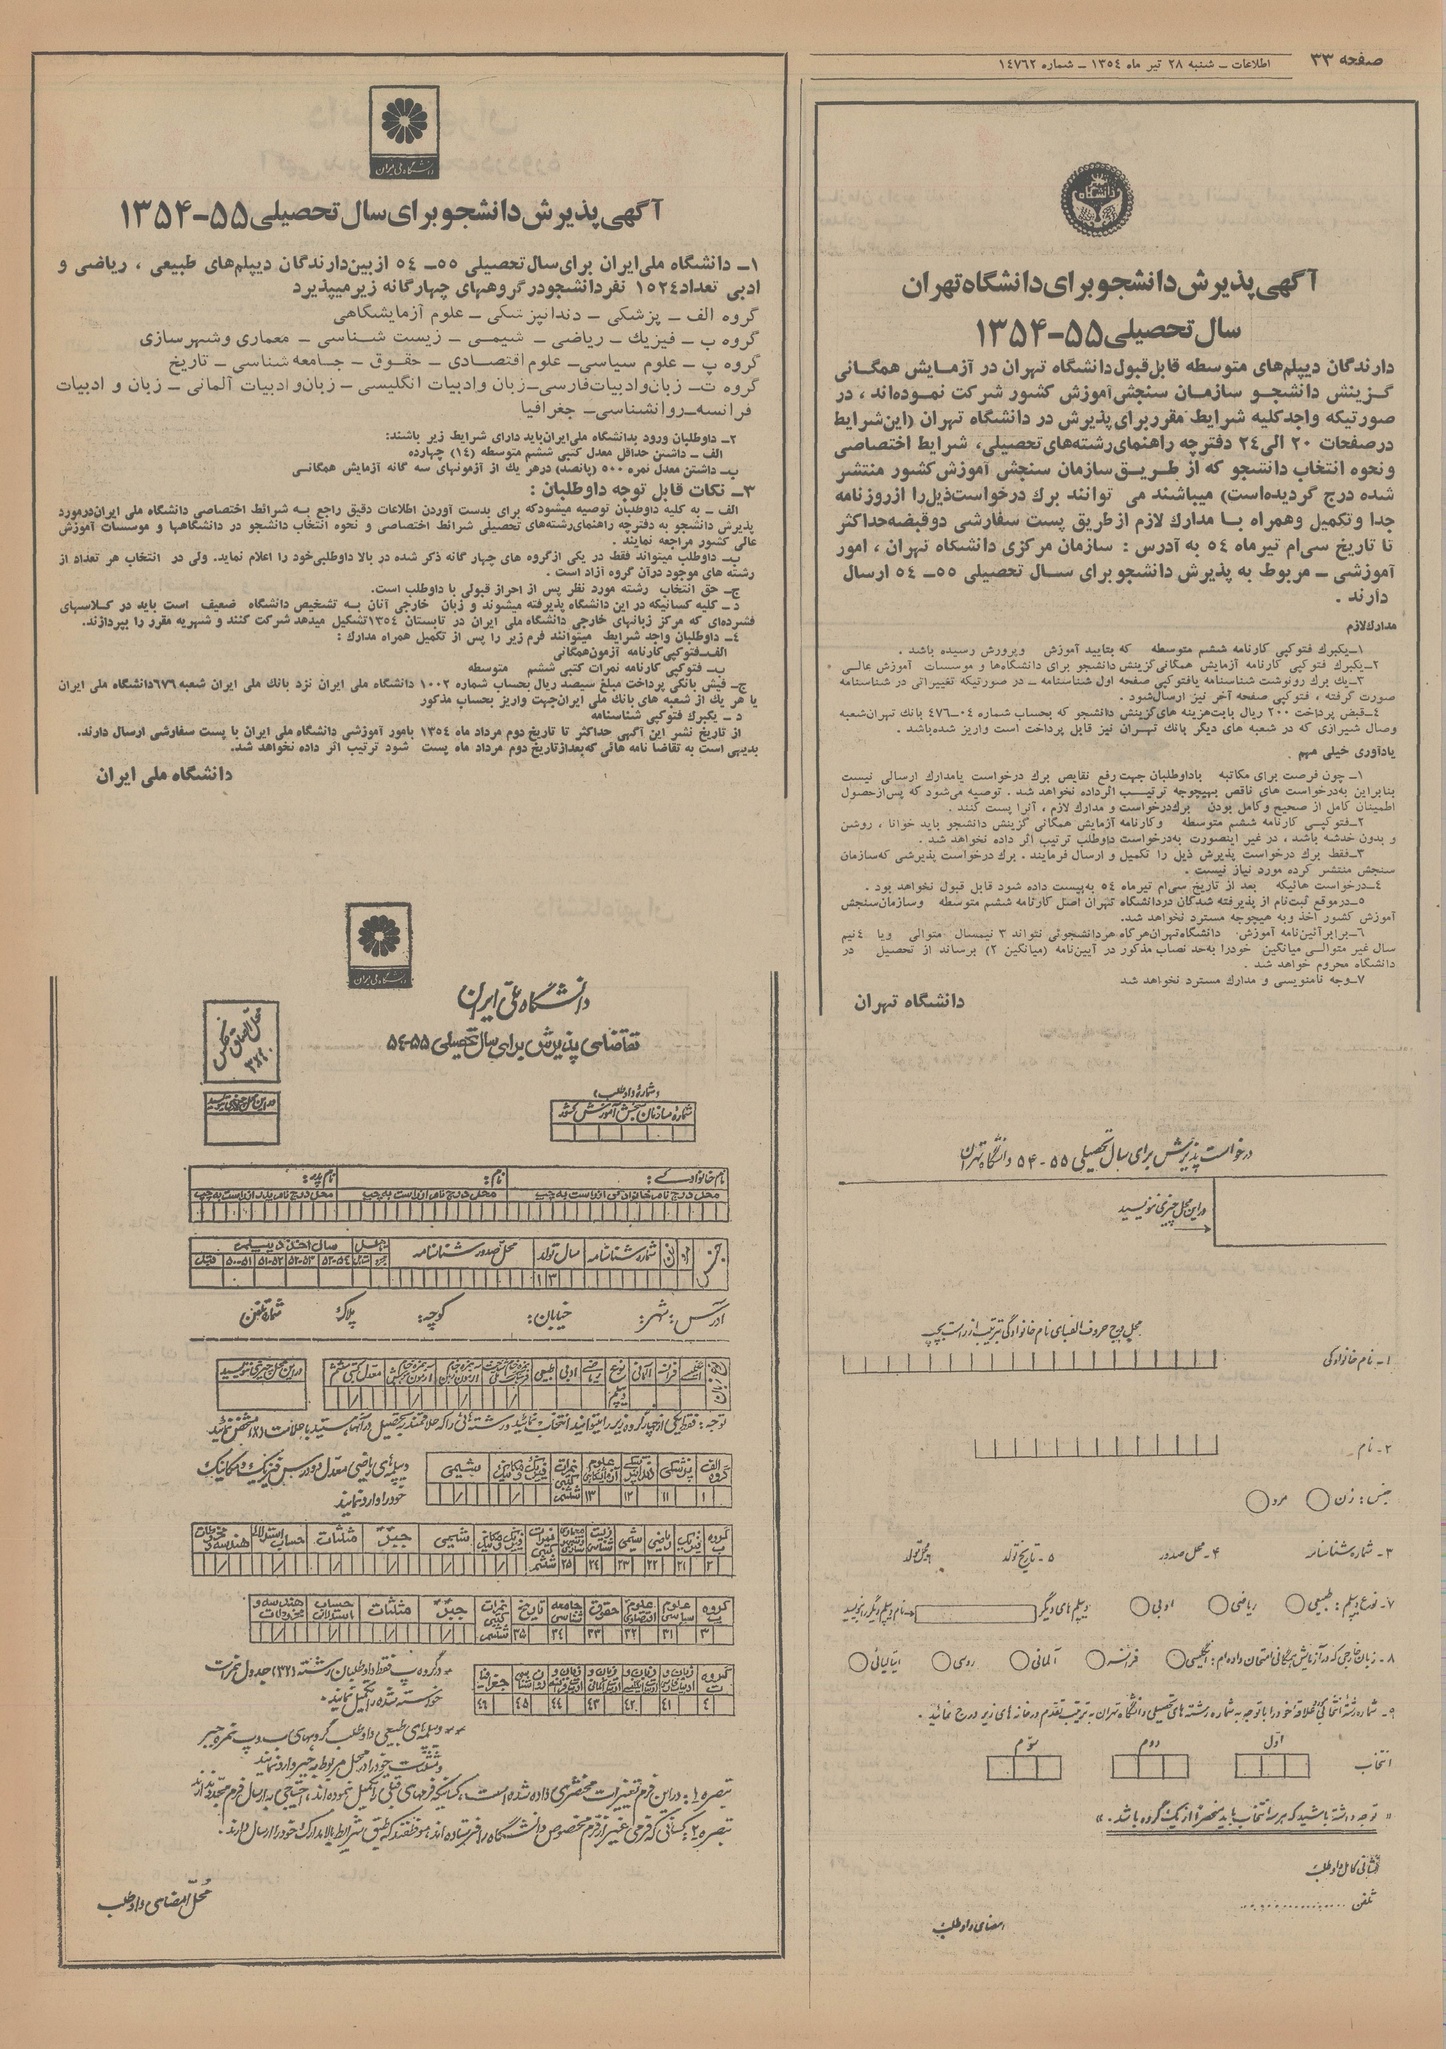 صفحه ۳۳
اطلاعات ـ شنبه ۲۸ تیر ماه ۱۳۵۴ ـ شماره ۱۴۷۶۲
دانشگاه
آگهی پذیرش دانشجو برای دانشگاه تهران
سال تحصیلی ۵۵-۱۳۵۴
دارندگان دیپلم‌های متوسطه قابل قبول دانشگاه تهران در آزمایش همگانی
گزینش دانشجو سازمان سنجش آموزش کشور شرکت نموده‌اند ، در
صورتیکه واجد کلیه شرایط مقرر برای پذیرش در دانشگاه تهران (این شرایط
در صفحات ۲۰ الی ۲۴ دفترچه راهنمای رشته‌های تحصیلی، شرایط اختصاصی
و نحوه انتخاب دانشجو که از طریق سازمان سنجش آموزش کشور منتشر
شده درج گردیده‌است) میباشند می توانند برك درخواست ذیل را از روزنامه
جدا و تکمیل و همراه با مدارك لازم از طریق پست سفارشی دو قبضه حداکثر
تا تاریخ سی‌ام تیر ماه ۵۴ به آدرس : سازمان مرکزی دانشگاه تهران ، امور
آموزشی ـ مربوط به پذیرش دانشجو برای سال تحصیلی ۵۵ـ ۵۴ ارسال
دارند .
مدارك لازم
۱ـ یکبرك فتوکپی کارنامه ششم متوسطه که بتایید آموزش وپرورش رسیده باشد .
۲ـ یکبرك فتوکپی کارنامه آزمایش همگانی گزینش دانشجو برای دانشگاه‌ها و موسسات آموزش عالی .
۳ـ یك برك رونوشت شناسنامه یا فتوکپی صفحه اول شناسنامه ـ در صورتیکه تغییراتی در شناسنامه
صورت گرفته ، فتوکپی صفحه آخر نیز ارسال شود .
۴ـ قبض پرداخت ۲۰۰ ریال بابت هزینه های گزینش دانشجو که بحساب شماره ۰۴ـ۴۷۶ بانك تهران شعبه
وصال شیرازی که در شعبه های دیگر بانك تهران نیز قابل پرداخت است واریز شده باشد .
یادآوری خیلی مهم
۱ـ چون فرصت برای مکاتبه با داوطلبان جهت رفع نقایص برك درخواست یا مدارك ارسالی نیست
بنابراین به درخواست های ناقص بهیچوجه ترتیب اثر داده نخواهد شد . توصیه می‌شود که پس از حصول
اطمینان کامل از صحیح و کامل بودن برك درخواست و مدارك لازم ، آنرا پست کنند .
۲ـ فتوکپی کارنامه ششم متوسطه و کارنامه آزمایش همگانی گزینش دانشجو باید خوانا ، روشن
و بدون خدشه باشد ، در غیر اینصورت به درخواست داوطلب ترتیب اثر داده نخواهد شد .
۳ـ فقط برك درخواست پذیرش ذیل را تکمیل و ارسال فرمایند . برك درخواست پذیرشی که سازمان
سنجش منتشر کرده مورد نیاز نیست .
۴ـ درخواست هائیکه بعد از تاریخ سی‌ام تیر ماه ۵۴ به پست داده شود قابل قبول نخواهد بود .
۵ـ در موقع ثبت نام از پذیرفته شدگان در دانشگاه تهران اصل کارنامه ششم متوسطه و سازمان سنجش
آموزش کشور اخذ و به هیچوجه مسترد نخواهد شد.
۶ـ برابر آئین‌نامه آموزش دانشگاه تهران هر گاه هر دانشجوئی نتواند ۳ نیمسال متوالی ویا ۴ نیم
سال غیر متوالی میانگین خود را به حد نصاب مذکور در آیین‌نامه (میانگین ۲) برساند از تحصیل در
دانشگاه محروم خواهد شد .
۷ـ وجه نامنویسی و مدارك مسترد نخواهد شد
دانشگاه تهران
درخواست پذیرش برای سال تحصیلی ۵۵-۵۴ دانشگاه تهران
در این محل چیزی ننویسید
محل درج حروف الفبای نام خانوادگی بترتیب از راست بچپ
۱- نام خانوادگی
۲- نام
جنس : زن مرد
۳- شماره شناسنامه ۴- محل صدور ۵- تاریخ تولد ۶- محل تولد
۷- نوع دیپلم : طبیعی ریاضی ادبی دیپلم های دیگر نام دیپلم دیگر را بنویسید
۸- زبان خارجی که در آزمایش همگانی امتحان داده ام : انگلیسی فرانسه آلمانی روسی ایتالیائی
۹- شماره رشته انتخابی مورد علاقه خود را با توجه به شماره رشته های تحصیلی دانشگاه تهران به ترتیب تقدم در خانه های زیر درج نمائید .
انتخاب اول دوم سوم
« توجه داشته باشید که هر سه انتخاب باید منحصراً از یک گروه باشد . »
نشانی کامل داوطلب
تلفن
امضای داوطلب
دانشگاه ملی ایران
آگهی پذیرش دانشجو برای سال تحصیلی ۵۵-۱۳۵۴
۱ـ دانشگاه ملی ایران برای سال تحصیلی ۵۵ـ ۵۴ از بین دارندگان دیپلم‌های طبیعی ، ریاضی و
ادبی تعداد ۱۵۲۴ نفر دانشجو در گروههای چهار گانه زیر میپذیرد
گروه الف ـ پزشکی ـ دندانپزشکی ـ علوم آزمایشگاهی
گروه ب ـ فیزیك ـ ریاضی ـ شیمی ـ زیست شناسی ـ معماری و شهرسازی
گروه پ ـ علوم سیاسی ـ علوم اقتصادی ـ حقوق ـ جامعه شناسی ـ تاریخ
گروه ت ـ زبان و ادبیات فارسی ـ زبان و ادبیات انگلیسی ـ زبان و ادبیات آلمانی ـ زبان و ادبیات
فرانسه ـ روانشناسی ـ جغرافیا
۲ـ داوطلبان ورود بدانشگاه ملی ایران باید دارای شرایط زیر باشند:
الف ـ داشتن حداقل معدل کتبی ششم متوسطه (۱۴) چهارده
ب ـ داشتن معدل نمره ۵۰۰ (پانصد) در هر یك از آزمونهای سه گانه آزمایش همگانی
۳ـ نکات قابل توجه داوطلبان :
الف ـ به کلیه داوطلبان توصیه میشود که برای بدست آوردن اطلاعات دقیق راجع به شرائط اختصاصی دانشگاه ملی ایران در مورد
پذیرش دانشجو به دفترچه راهنمای رشته‌های تحصیلی شرائط اختصاصی و نحوه انتخاب دانشجو در دانشگاهها و موسسات آموزش
عالی کشور مراجعه نمایند .
ب ـ داوطلب میتواند فقط در یکی از گروه های چهار گانه ذکر شده در بالا داوطلبی خود را اعلام نماید. ولی در انتخاب هر تعداد از
رشته های موجود در آن گروه آزاد است .
ج ـ حق انتخاب رشته مورد نظر پس از احراز قبولی با داوطلب است.
د ـ کلیه کسانیکه در این دانشگاه پذیرفته میشوند و زبان خارجی آنان به تشخیص دانشگاه ضعیف است باید در کلاسهای
فشرده‌ای که مرکز زبانهای خارجی دانشگاه ملی ایران در تابستان ۱۳۵۴ تشکیل میدهد شرکت کنند و شهریه مقرر را بپردازند.
۴ـ داوطلبان واجد شرایط میتوانند فرم زیر را پس از تکمیل همراه مدارك :
الف ـ فتوکپی کارنامه آزمون همگانی
ب ـ فتوکپی کارنامه نمرات کتبی ششم متوسطه
ج ـ فیش بانکی پرداخت مبلغ سیصد ریال بحساب شماره ۱۰۰۲ دانشگاه ملی ایران نزد بانك ملی ایران شعبه ۶۷۶ دانشگاه ملی ایران
یا هر یك از شعبه های بانك ملی ایران جهت واریز بحساب مذکور
د ـ یکبرك فتوکپی شناسنامه
از تاریخ نشر این آگهی حداکثر تا تاریخ دوم مرداد ماه ۱۳۵۴ بامور آموزشی دانشگاه ملی ایران با پست سفارشی ارسال دارند.
بدیهی است به تقاضا نامه هائی که بعد از تاریخ دوم مرداد ماه پست شود ترتیب اثر داده نخواهد شد.
دانشگاه ملی ایران
دانشگاه ملی ایران
دانشگاه ملی ایران
تقاضای پذیرش برای سال تحصیلی ۵۵-۵۴
محل الصاق عکس
در این محل چیزی ننویسید
(شماره داوطلب)
شماره سازمان سنجش آموزش کشور
نام خانوادگی : نام : نام پدر :
محل درج نام خانوادگی از راست به چپ محل درج نام از راست به چپ محل درج نام پدر از راست به چپ
جنس مرد زن شماره شناسنامه سال تولد محل صدور شناسنامه سال اخذ دیپلم
۵۴-۵۳ ۵۳-۵۲ ۵۲-۵۱ ۵۱-۵۰ قبل
۱۳
آدرس : شهر : خیابان : کوچه : پلاک : شماره تلفن
انگلیسی فرانسه آلمانی نوع دیپلم ریاضی ادبی طبیعی معدل کتبی ششم
در این محل چیزی ننویسید
توجه : فقط یکی از چهار گروه زیر را میتوانید انتخاب نمائید و رشته هائی را که علاقمند به تحصیل در آنها هستید با علامت (x) مشخص نمائید
گروه الف پزشکی دندانپزشکی علوم آزمایشگاهی نمرات کتبی ششم فیزیک و مکانیک شیمی
۱ ۱۱ ۱۲ ۱۳
دیپلمه های ریاضی معدل دو درس فیزیک و مکانیک
خود را وارد نمایند
گروه ب فیزیک ریاضی شیمی زیست شناسی معماری و شهرسازی نمرات کتبی ششم فیزیک و مکانیک شیمی جبر مثلثات حساب استدلالی هندسه و مخروطات
۲ ۲۱ ۲۲ ۲۳ ۲۴ ۲۵
گروه پ علوم سیاسی علوم اقتصادی حقوق جامعه شناسی تاریخ نمرات کتبی ششم جبر مثلثات حساب استدلالی هندسه و مخروطات
۳ ۳۱ ۳۲ ۳۳ ۳۴ ۳۵
گروه ت جغرافیا
۴ ۴۱ ۴۲ ۴۳ ۴۴ ۴۵ ۴۶
* در گروه پ فقط داوطلبان رشته (۳۲) جدول نمرات
خواسته شده را تکمیل نمایند .
** دیپلمه های طبیعی داوطلب گروههای ب و پ نمره جبر
و مثلثات خود را در محل مربوط به جبر وارد نمایند
تبصره ۱ : در این فرم تغییرات مختصری داده شده است ، کسانیکه فرمهای قبلی را تکمیل نموده اند ، احتیاجی به ارسال فرم مجدد ندارند
تبصره ۲ : کسانی که فرمی غیر از فرم مخصوص دانشگاه را فرستاده اند ، موظفند که طبق شرایط بالا مدارک خود را ارسال دارند .
محل امضای داوطلب